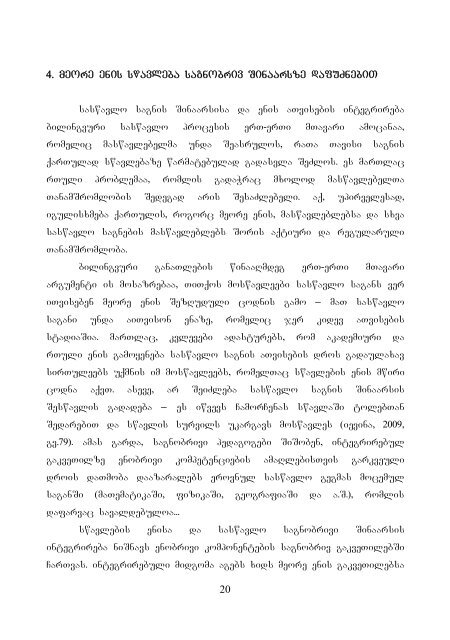 4. მეორე ენის სწავლება საგნობრივ შინაარსზე დაფუძნებით
სასწავლო საგნის შინაარსისა და ენის ათვისების ინტეგრირება
ბილინგვური სასწავლო პროცესის ერთ-ერთი მთავარი ამოცანაა,
რომელიც მასწავლებელმა უნდა შეასრულოს, რათა თავისი საგნის
ქართულად სწავლებაზე წარმატებულად გადასვლა შეძლოს. ეს მართლაც
რთული პრობლემაა, რომლის გადაჭრაც მხოლოდ მასწავლებელთა
თანამშრომლობის შედეგად არის შესაძლებელი. აქ, უპირველესად,
იგულისხმება ქართულის, როგორც მეორე ენის, მასწავლებლებსა და სხვა
სასწავლო საგნების მასწავლებლებს შორის აქტიური და რეგულარული
თანამშრომლობა.
ბილინგვური განათლების წინააღმდეგ ერთ-ერთი მთავარი
არგუმენტი ის მოსაზრებაა, თითქოს მოსწავლეები სასწავლო საგანს ვერ
ითვისებენ მეორე ენის შეზღუდული ცოდნის გამო – მათ სასწავლო
საგანი უნდა აითვისონ ენაზე, რომელიც ჯერ კიდევ ათვისების
სტადიაშია. მართლაც, კვლევები ადასტურებს, რომ აკადემიური და
რთული ენის გამოყენება სასწავლო საგნის ათვისების დროს გადაულახავ
სირთულეებს უქმნის იმ მოსწავლეებს, რომელთაც სწავლების ენის მწირი
ცოდნა აქვთ. ასევე, არ შეიძლება სასწავლო საგნის შინაარსის
შესწავლის გადადება – ეს იწვევს ჩამორჩენას სწავლაში ტოლებთან
შედარებით და სწავლის სურვილს უკარგავს მოსწავლეს (იევინა, 2009,
გვ.79). ამას გარდა, საგნობრივი პედაგოგები შიშობენ, ინტეგრირებულ
გაკვეთილზე ენობრივი კომპეტენციების ამაღლებისთვის გარკვეული
დროის დათმობა დააზარალებს ეროვნულ სასწავლო გეგმას მოცემულ
საგანში (მათემატიკაში, ფიზიკაში, გეოგრაფიაში და ა.შ.), რომლის
დაფარვაც სავალდებულოა...
სწავლების ენისა და სასწავლო საგნობრივი შინაარსის
ინტეგრირება ნიშნავს ენობრივი კომპონენტების საგნობრივ გაკვეთილებში
ჩართვას. ინტეგრირებული მიდგომა აგებს ხიდს მეორე ენის გაკვეთილებსა
20